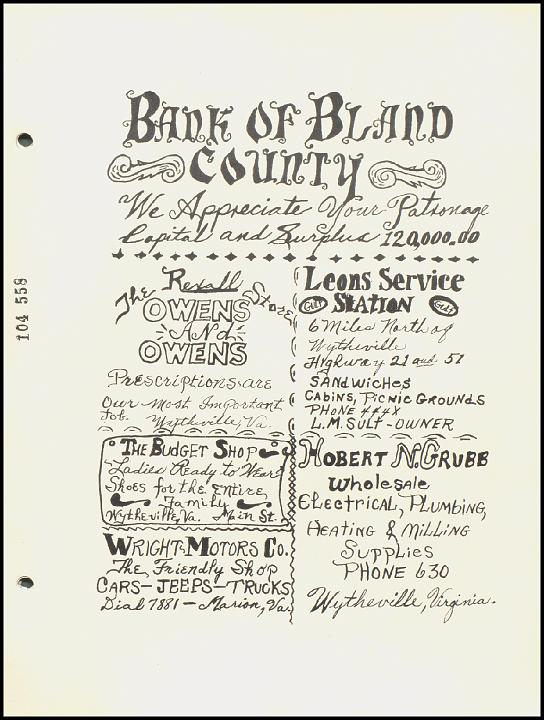 BANK OF BLAND
COUNTY
We Appreciate Your Patronage
Capital and Surplus 120,000.00
The Rexall Store
OWENS
AND
OWENS
Prescriptions are
Our Most Important
Job. Wytheville, Va.
THE BUDGET SHOP
Ladies Ready to Wear
Shoes for the Entire
Family
Wytheville, Va. Main St.
WRIGHT MOTORS CO.
The Friendly Shop
CARS-JEEPS-TRUCKS
Dial 7881 - Marion, Va.
Leons Service
STATION
Gulf Gulf
6 Miles North of
Wytheville
Highway 21 and 52
SANDWICHES
CABINS, PICNIC GROUNDS
PHONE 444X
L.M. SULT - OWNER
HOBERT N. GRUBB
Wholesale
Electrical, Plumbing,
HEATING & MILLING
SUPPLIES
PHONE 630
Wytheville, Virginia.
104 558